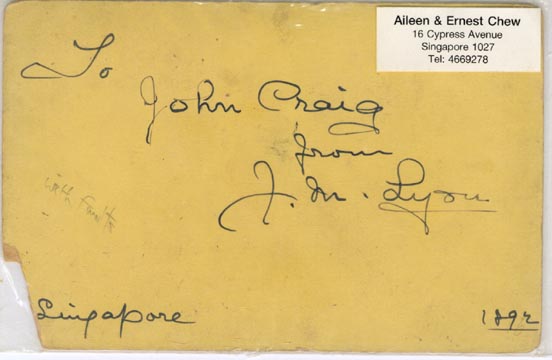 Aileen & Ernest Chew
16 Cypress Avenue
Singapore 1027
Tel: 4669278
To
John Craig
from
J. M. Lyon
Singapore
1892